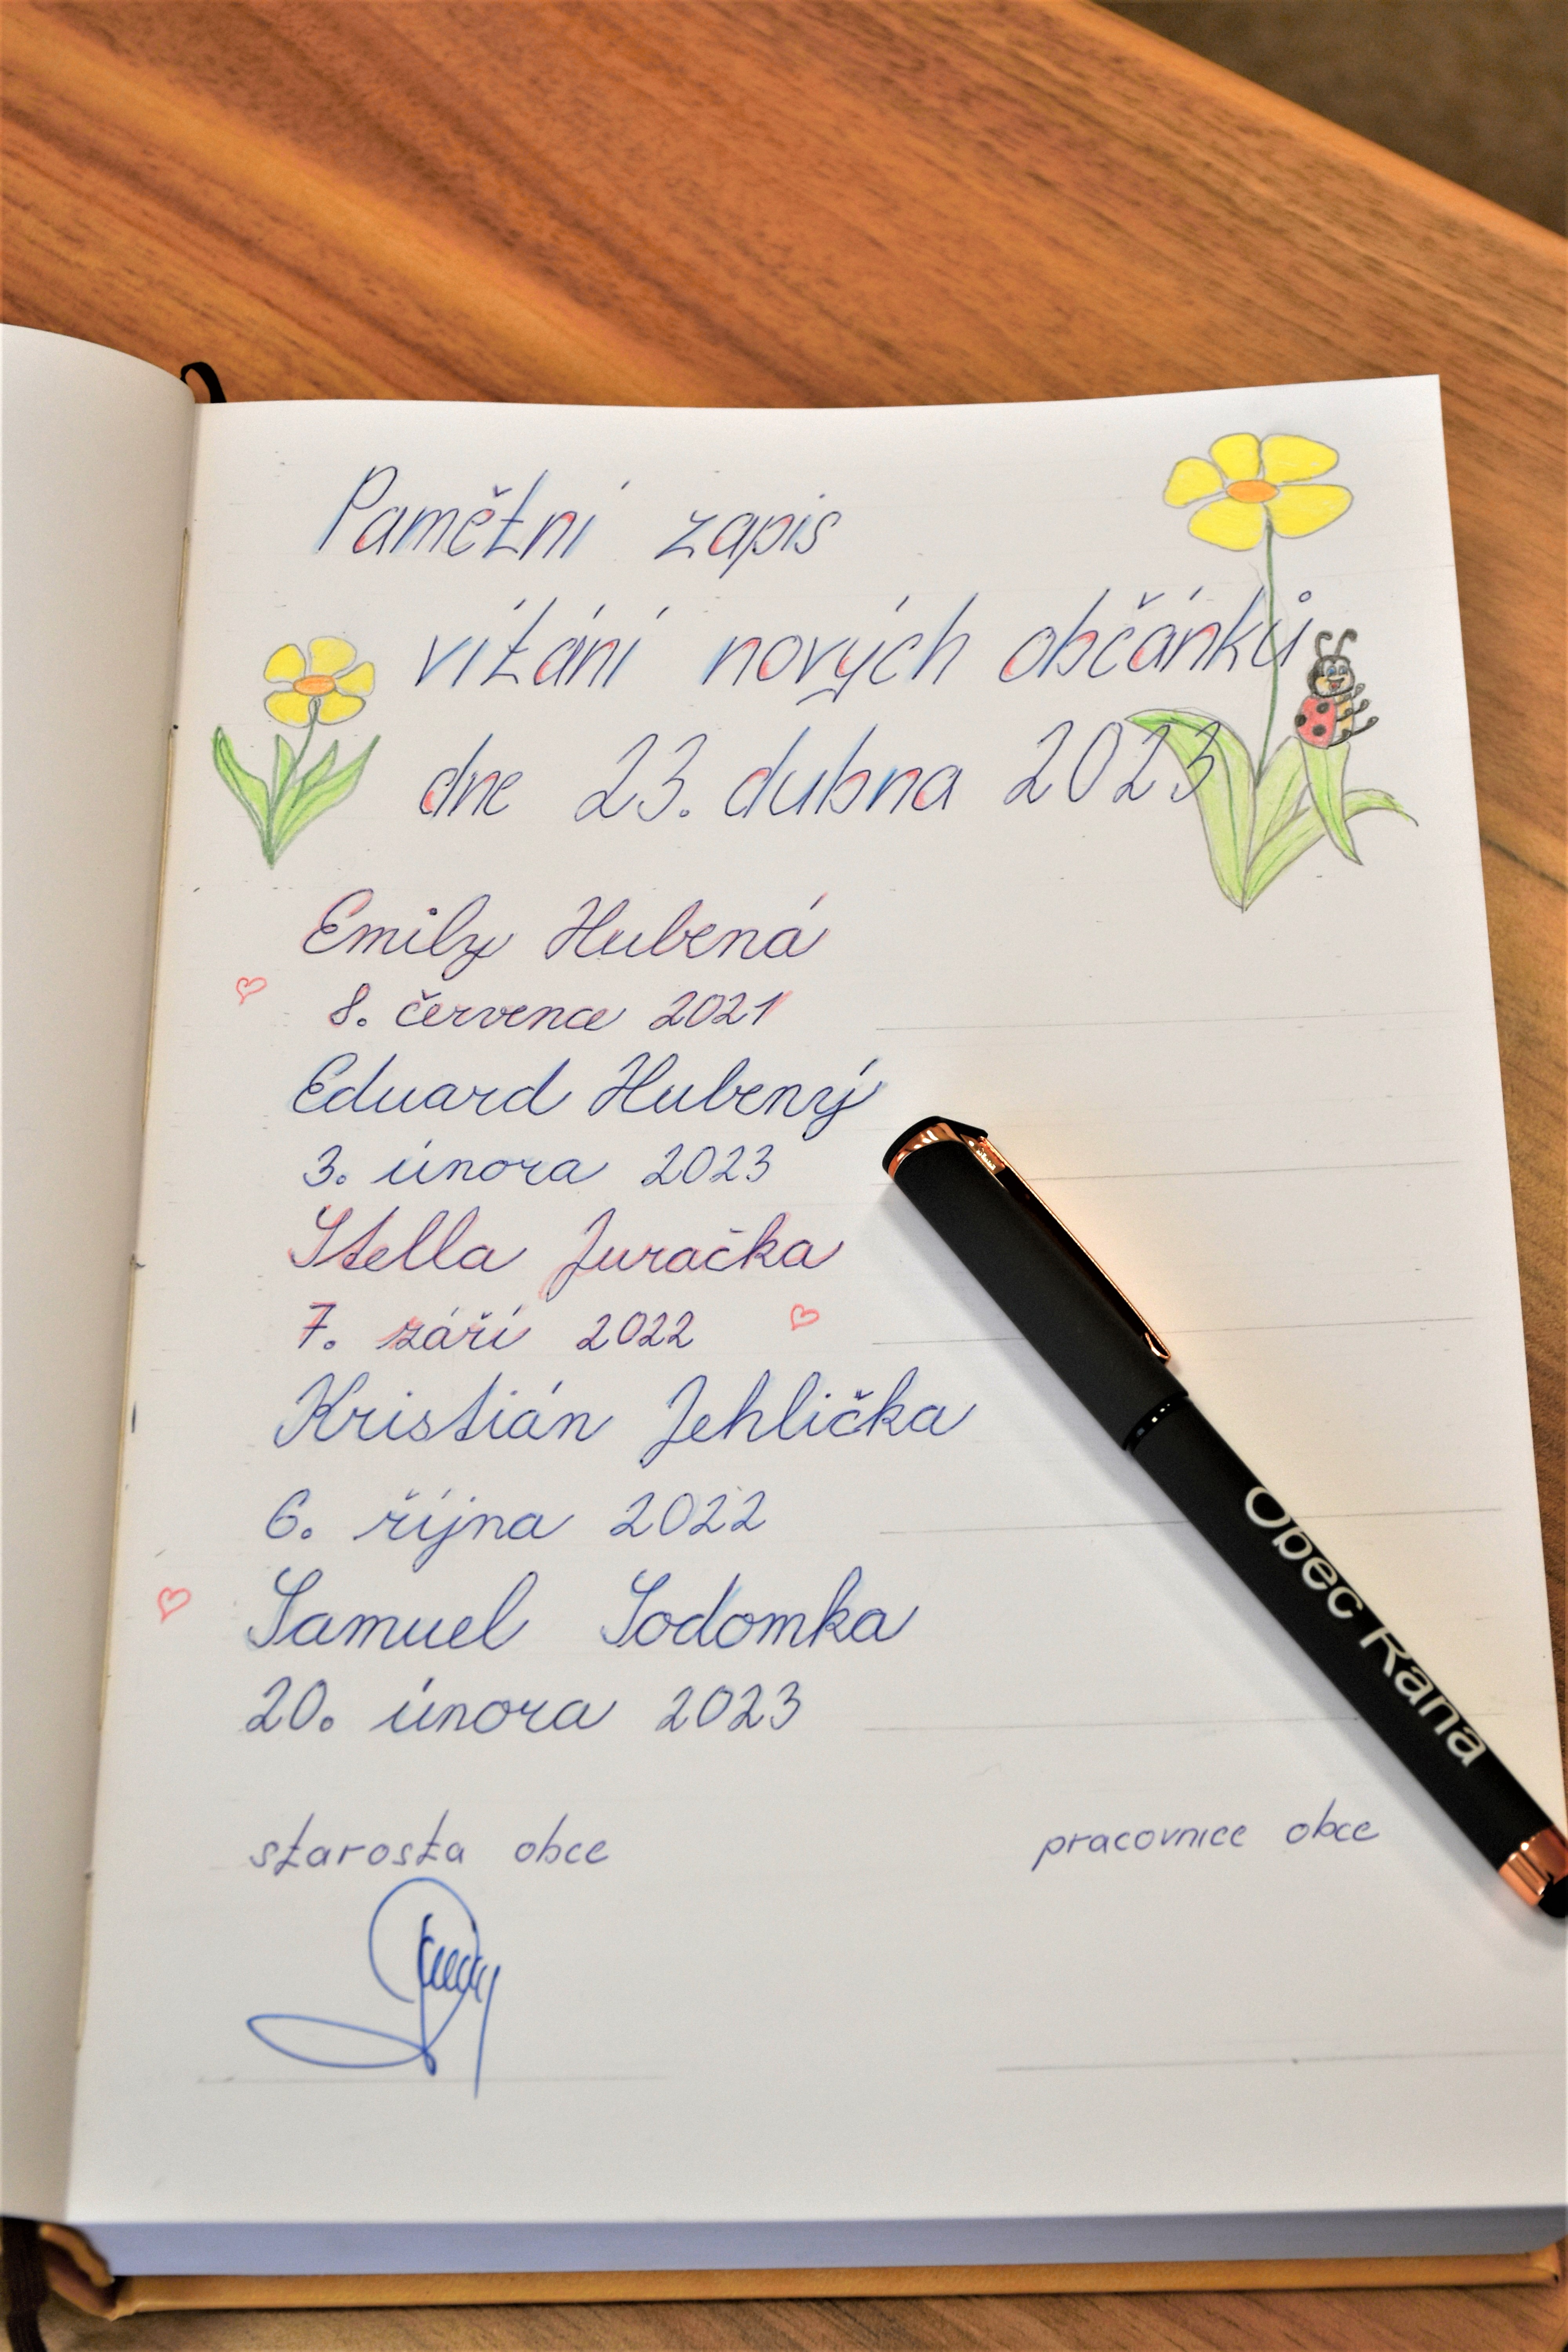 Pamětní zapis
vítání nových občánků
dne 23. dubna 2023
Emily Hubená
8. července 2021
Eduard Hubený
3. února 2023
Stella Juračka
7. září 2022
Kristián Jehlička
6. října 2022
Samuel Sodomka
20. února 2023
starosta obce
pracovnice obce
Obec Raná